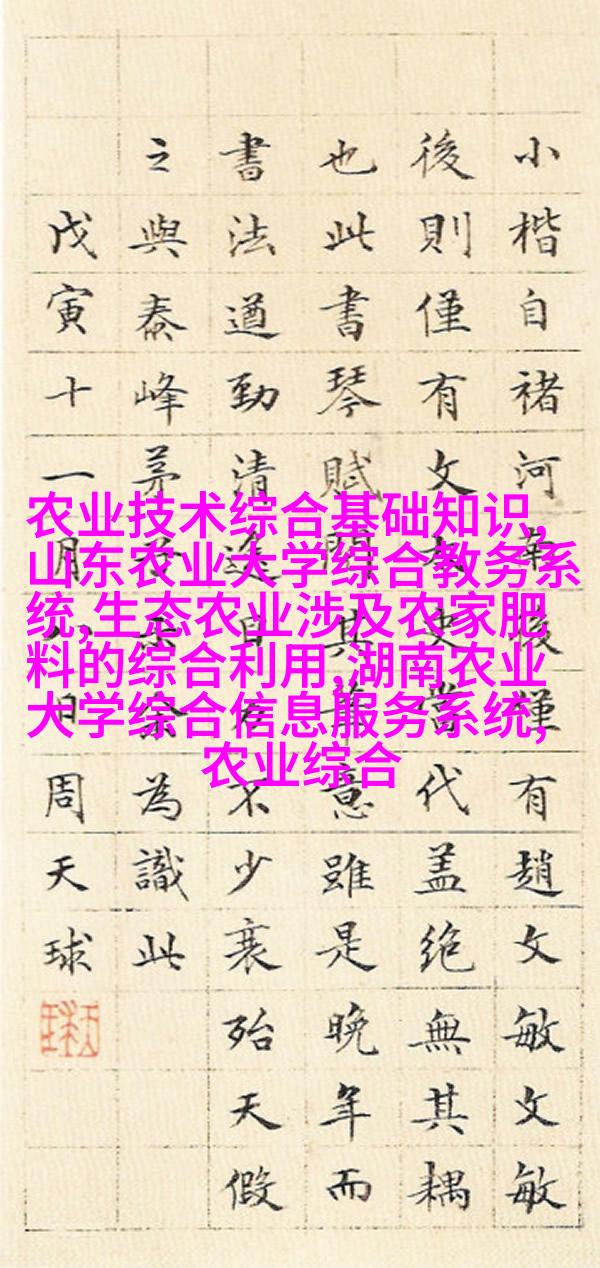 小楷自褚河南後僅有趙文敏文敏
後則僅有文史當代蓋絕無其耦
也此書琴賦其意雖是晚年而
書法遒勁清逸自不少衰殆天假
之與泰峰茅示余為識此
戊寅十一月八日周天球
农业技术综合基础知识,
山东农业大学综合教务系
统,生态农业涉及农家肥
料的综合利用,湖南农业
大学综合信息服务系统,
农业综合